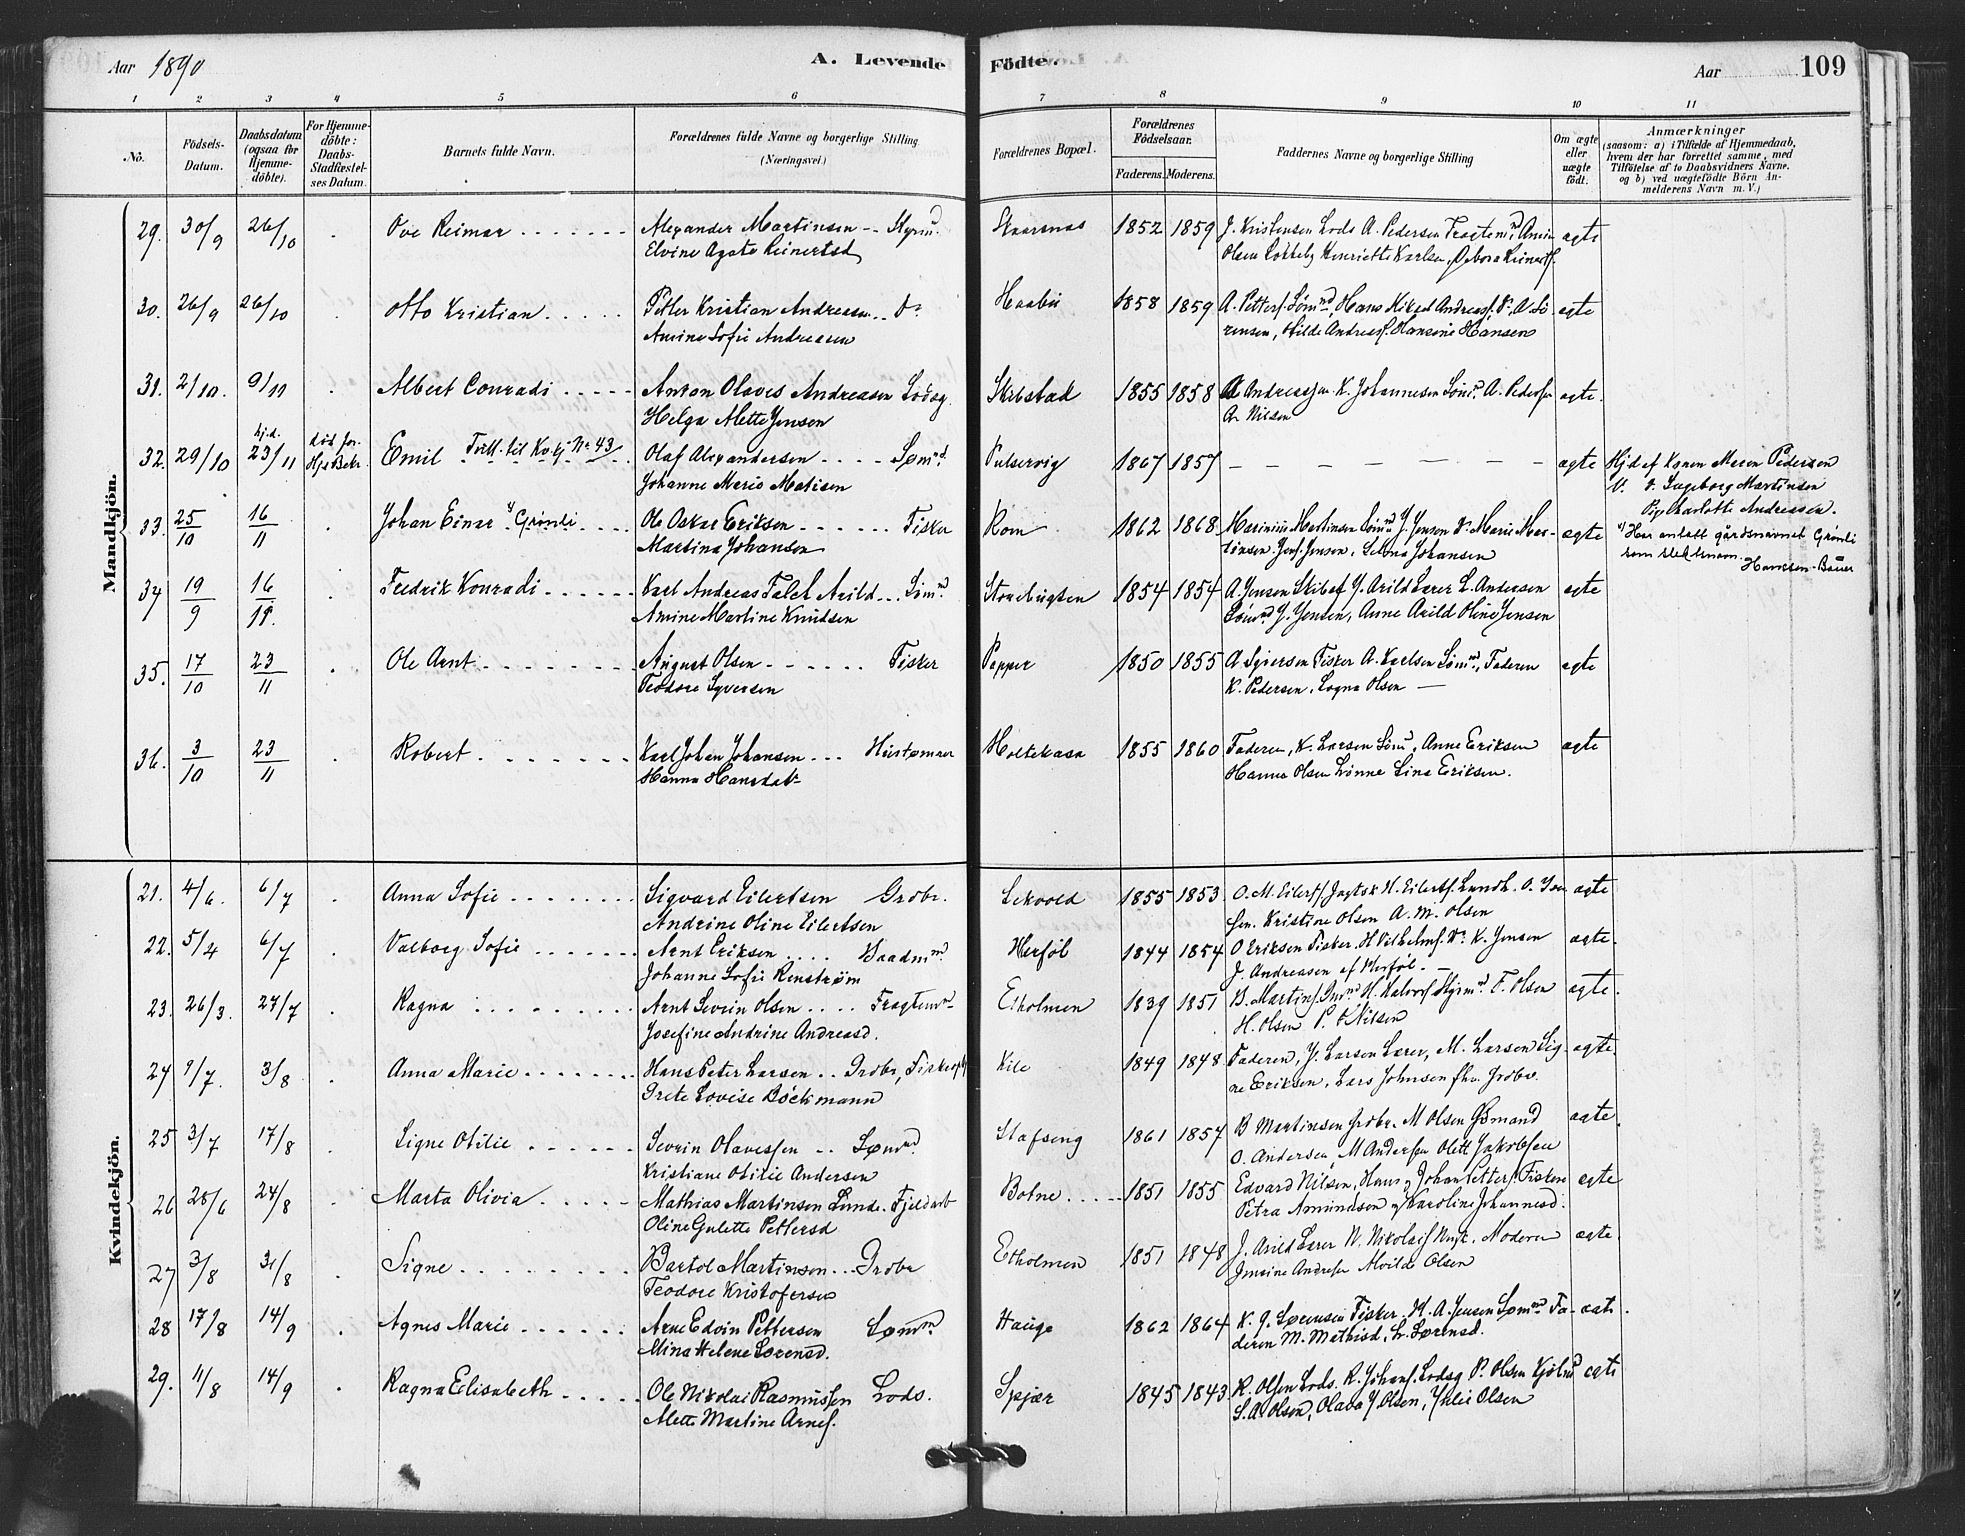 Aar 1890
A. Levende Födte.
Aar 109
1 2 3 4 5 6 7 8 9 10 11
No.
Födsels-Datum.
Daabsdatum (ogsaa for Hjemme-döbte).
For Hjemme-döbte: Daabs-Stadfæstel-ses Datum.
Barnets fulde Navn.
Forældrenes fulde Navne og borgerlige Stilling (Næringsvei.)
Forældrenes Bopæl.
Forældrenes Födselsaar.
Faderens. Moderens.
Faddernes Navne og borgerlige Stilling
Om ægte eller uægte födt.
Anmærkninger
(saasom: a) i Tilfælde af Hjemmedaab,
hvem der har forrettet samme, med
Tilföielse af to Daabsvidners Navne.
og b) ved uægtefödte Börn An-
melderens Navn m. V.)
Mandkjön.
29. 30/9 26/10 Ove Reimar Alexander Martinsen Styrm. 1852 1859 J. Kristensen Lods A. Pedersen Fragtemd, ægte
Elvine Agate Reinertsd Olsen Henriette Karlsen,
30. 26/9 26/10 Otto Kristian Petter Kristian Andreasen Do Haabu 1858 1859 A. Petters. Sømd, Hans Andreas. ægte
Amine Sofie Andreasen rensen, Hilde Andreas. Hansine Hansen
31. 2/10. 9/11 Albert Conradi Anton Olaves Andreasen Lodsg. Skibstad 1855 1858 Andreassen K. Johannesen Sømd. A. Pedersen ægte.
Helga Mette Jensen A. Nilsen
32. 29/10 hjd. 23/11 Emil Tvill. til Kvkj. No 43 Olaf Alexandersen Sømd. Pulservig 1867 1857 — — — — — ægte Hjd af Konen Maren Pedersen
Johanne Marie Matisen V. Ingeborg Martinsen
Pig Charlotte Andreasen.
33. 25/10 16/11 Johan Einar 1) Grønli Ole Oskar Eriksen Fisker Rom 1862 1868 Marinius Martinsen Sømd J. Jensen Do Marie Mar- ægte 1) Har antatt gårdsnavnet Grønli
Martina Johansen tinsen Jensen, Johansen som slektsnavn.
Hanssen-Bauer
34 19/9 16/11. Fredrik Konradi Karl Andreas Falck Arild Sømd Storebugten 1854 1854 A. Jensen J. Arild Lærer L. Andersen ægte
Amine Martine Knudsen Sømd J. Jensen, Anne Arild Oline Jensen
35. 17/10 23/11 Ole Arnt August Olsen Fisker Pepper 1850 1855 A. Syversen Fisker A. Karlsen Sømd, Faderen ægte
Teodore Syversen K. Pedersen, Olsen —
36. 3/10 23/11 Robert Karl Johan Johansen Hustømrer Holtekasa 1855 1860 Faderen, K. Larsen Sømd, Anne Eriksen ægte
Hanna Hansdat Hanna Olsen Lønne Lina Eriksen.
Kvindekjön.
21. 4/6. 6/7 Anna Sofie Sigvard Eilertsen Grdbr. Sekvold 1855 1853 O. M. Eilerts. Jagtsk H. Eilerts. Lundh. ægte
Andrine Oline Eilertsen Kristine Olsen A. M. Olsen
22. 5/4 6/7 Valborg Sofie Arnt Eriksen Baadmd. Herføl 1844 1854 O Eriksen Fisker. H Vilhelms. Do K. Jensen ægte.
Johanne Sofie Renstrøm J. Andreasen af Herføl. —
23. 26/3. 27/7 Ragna Arnt Severin Olsen Fragtemd Etholmen 1839 1851 B. Martins. H. Halvors. Styrmd. F. Olsen ægte.
Josefine Andrine Andreasd. H. Olsen P. Nilsen
24 9/7. 3/8 Anna Marie Hans Peter Larsen Grdbr, Kile 1849 1848 Faderen, J. Larsen Lærer, M. Larsen Sig- ægte.
Grete Lovise Böckmann ne Eriksen, Lars Johnsen fhv. Grdbr.
25 3/7 17/8 Signe Otilie Severin Olavessen Sømd. Stafseng 1861 1857 B Martinsen Grdbr. M Olsen ægte.
Kristiane Otilie Andersen O. Andersen, M Andersen Olett Jakobsen
26 28/6 24/8 Marta Olivia Mathias Martinsen Lunde Fjeldarb Botne 1851 1855 Edvard Nilsen, Hans og Johan Petters. Fiskere ægte
Oline Gulette Pettersd Petra Amundsen og Karoline Johannesd.
27 3/8 31/8 Signe Bartol Martinsen Grdbr Etholmen 1851 1848 J. Arild Lærer N. Nikolais. Moderen ægte.
Teodore Kristofersen Andresen Olsen
28 17/8 14/9 Agnes Marie Arne Edvin Pettersen Sømd. Hauge 1862 1864 K. J. Sørensen Fisker. H. A. Jensen Sømd Fa- ægte.
Mina Helene Sørensd. deren M. Mathisd, L. Sørensd.
29. 11/8 14/9 Ragna Elisabeth Ole Nikolai Rasmussen Lods. Spjær 1845 1843 R. Olsen Lods. R. Johans. Lodsg P. Olsen ægte
Mette Martine Arnes. S. A. Olsen, Olava J. Olsen, Julie Olsen